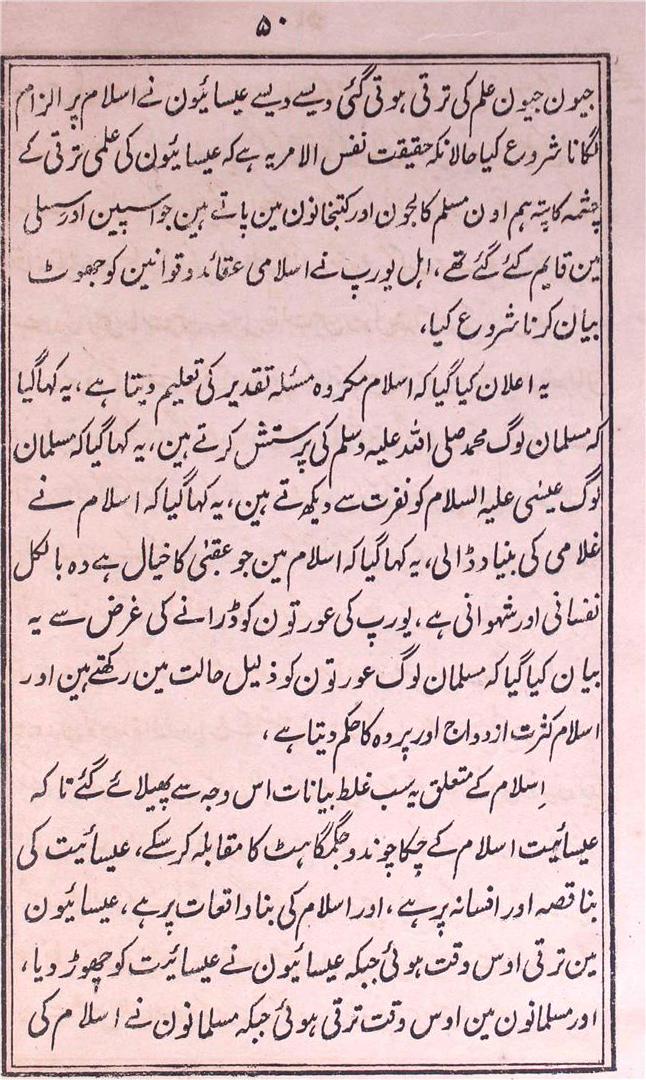 ۵۰
جیون جیون علم کی ترقی ہوتی گئی ویسے ویسے عیسائیون نے اسلام پر الزام
لگانا شروع کیا حالانکہ حقیقت نفس الامریہ ہے کہ عیسائیون کی علمی ترقی کے
چشمہ کا پتہ ہم اون مسلم کالجون اور کتبخانون مین پاتے ہین جو اسپین اور سسلی
مین قایم کئے گئے تھے، اہل یورپ نے اسلامی عقائد و قوانین کو جھوٹ
بیان کرنا شروع کیا،
یہ اعلان کیا گیا کہ اسلام مکروہ مسئلہ تقدیر کی تعلیم دیتا ہے، یہ کہا گیا
کہ مسلمان لوگ محمد صلی اللہ علیہ وسلم کی پرستش کرتے ہین، یہ کہا گیا کہ مسلمان
لوگ عیسٰی علیہ السلام کو نفرت سے دیکھتے ہین، یہ کہا گیا کہ اسلام نے
غلامی کی بنیاد ڈالی، یہ کہا گیا کہ اسلام مین جو عقبٰی کا خیال ہے وہ بالکل
نفسانی اور شہوانی ہے، یورپ کی عورتون کو ڈرانے کی غرض سے یہ
بیان کیا گیا کہ مسلمان لوگ عورتون کو ذلیل حالت مین رکھتے ہین اور
اسلام کثرت ازدواج اور پردہ کا حکم دیتا ہے،
اِسلام کے متعلق یہ سب غلط بیانات اس وجہ سے پھیلائے گئے تا کہ
عیسائیت اسلام کے چکاچوند و جگمگاہٹ کا مقابلہ کر سکے، عیسائیت کی
بنا قصہ اور افسانہ پر ہے، اور اسلام کی بنا واقعات پر ہے، عیسائیون
مین ترقی اوس وقت ہوئی جبکہ عیسائیون نے عیسائیت کو چھوڑ دیا،
اور مسلمانون مین اوس وقت ترقی ہوئی جبکہ مسلمانون نے اسلام کی